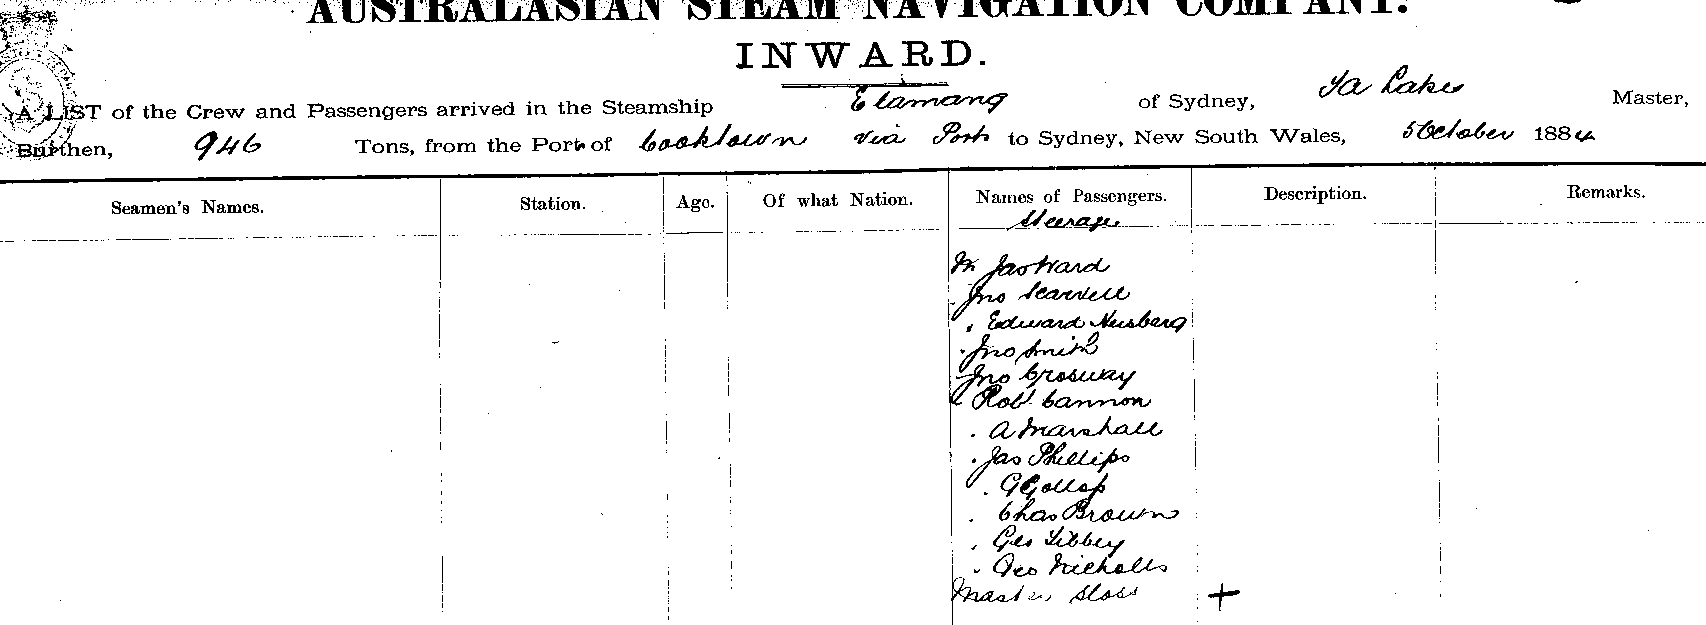 AUSTRALASIAN STEAM NAVIGATION COMPANY.
INWARD.
A LIST of the Crew and Passengers arrived in the Steamship Elamang of Sydney, Lake Master,
Burthen, 946 Tons, from the Port of Cooktown via Ports to Sydney, New South Wales, 5 October 1884
Seamen's Names. Station. Age. Of what Nation. Names of Passengers. Description. Remarks.
Steerage
Mr Jas Ward
Jno Scarvell
Edward Neusberg
Jno Smith
Jno Crosway
Robt Cannon
A Marshall
Jas Phillips
G Gollop
Chas Brown
Geo Libbey
Geo Nicholls
Master Sloss +